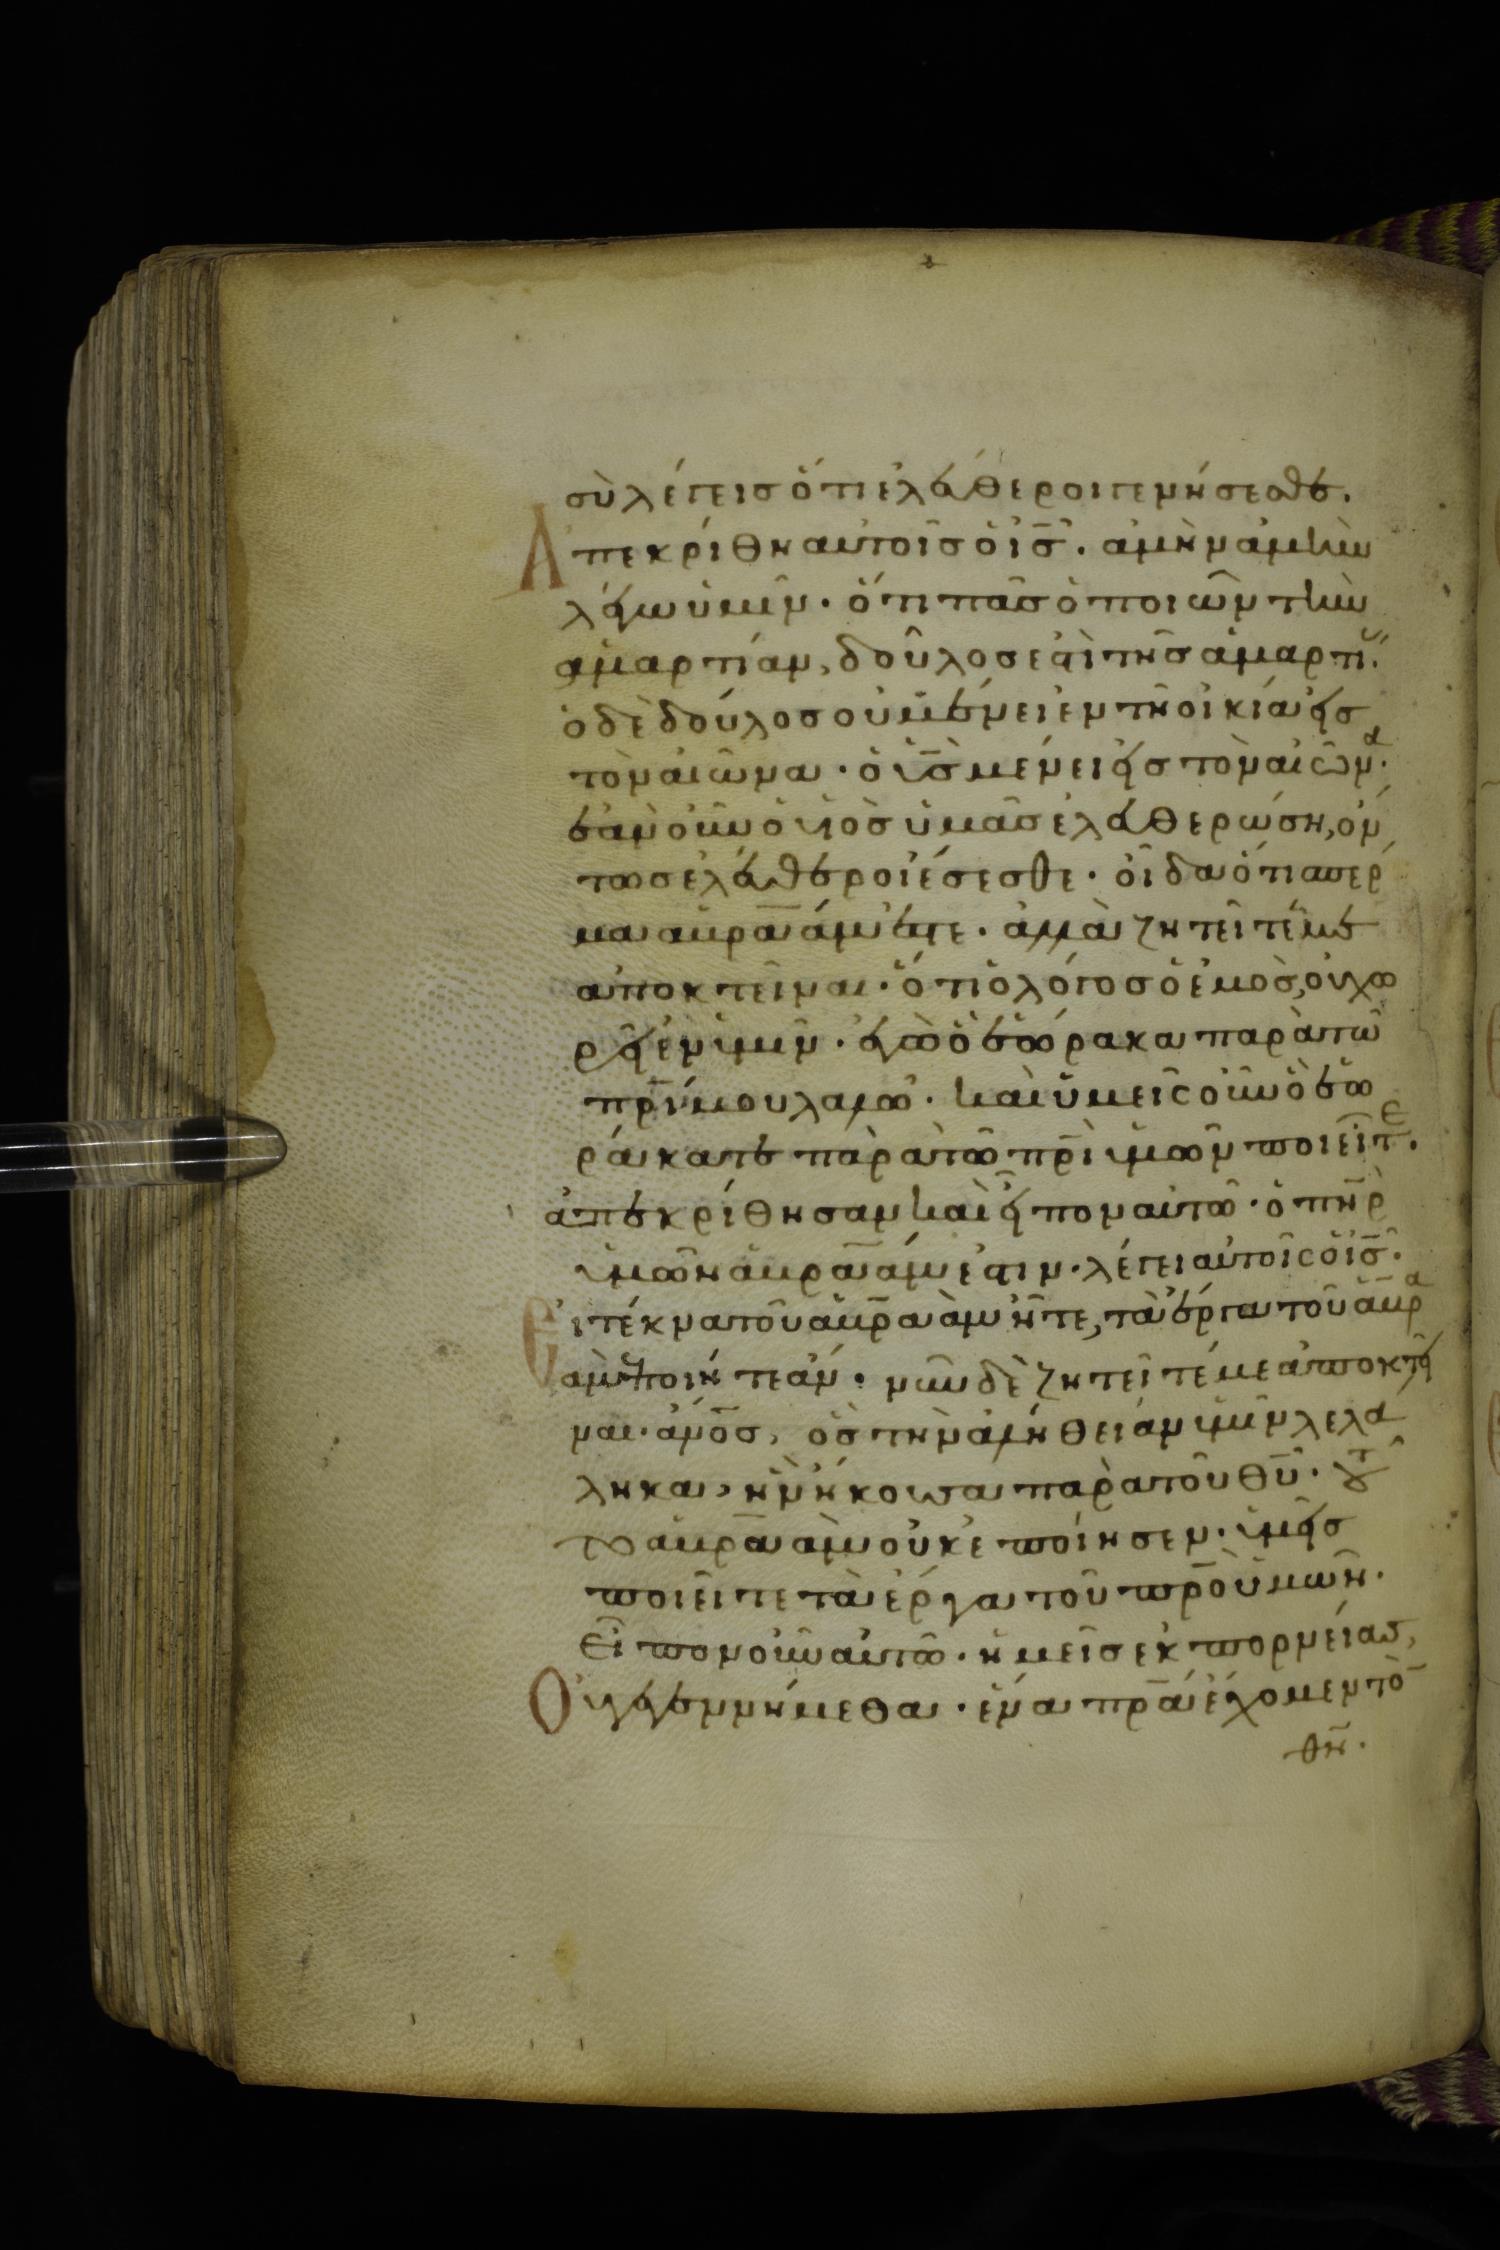 σὺ λέγεισ ὅτι ἐλεύθεροι γενήσεσθε.
Ἀπεκρίθη αὐτοῖσ ὁ ἰ̅σ̅. ἀμὴν ἀμὴν
λέγω ὑμῖν. ὅτι πᾶσ ὁ ποιῶν τὴν
ἁμαρτίαν, δοῦλοσ ἐστὶ τῆσ ἁμαρτί.
ὁ δὲ δούλοσ οὐ μένει ἐν τῆ οἰκία εἰσ
τὸν αἰῶνα. ὁ υ̅σ̅ μένει εἰσ τὸν αἰῶνα.
ἐὰν οὖν ὁ υἱὸσ ὑμᾶσ ἐλευθερώση, ὄν
τωσ ἐλεύθεροι ἔσεσθε. οἶδα ὅτι σπέρ
μα ἀβραάμ ἐστε. ἀλλὰ ζητεῖτέ με
ἀποκτεῖναι. ὅτι ὁ λόγοσ ὁ ἐμὸσ, οὐ χω
ρεῖ ἐν ὑμῖν. ἐγὼ ὃ ἑώρακα παρὰ τῶ
π̅ρ̅ι̅ μου λαλῶ. καὶ ὑμεῖς οὖν ὃ ἑω
ράκατε παρὰ τῶ π̅ρ̅ὶ ὑμῶν ποιεῖτε.
ἀπεκρίθησαν καὶ εἶπον αὐτῶ. ὁ π̅η̅ρ̅
ἡμῶν ἀβραάμ ἐστιν. λέγει αὐτοῖς ὁ ἰ̅σ̅.
Εἰ τέκνα τοῦ ἀβραὰμ ἦτε, τὰ ἔργα τοῦ ἀβρα
ὰμ ἐποιήτε ἄν. νῦν δὲ ζητεῖτέ με ἀποκτεῖ
ναι. ἀ̅ν̅ο̅σ̅, ὃσ τὴν ἀλήθειαν ὑμῖν λελά
ληκα, ἣν ἤκουσα παρὰ τοῦ θ̅υ̅. τοῦ
το ἀβραὰμ οὐκ ἐποίησεν. ὑμεῖσ
ποιεῖτε τὰ ἔργα τοῦ π̅ρ̅ο̅ὺ ὑμῶν.
Εἶπον οὖν αὐτῶ. ἡμεῖσ ἐκ πορνείασ,
Οὐ γεγεννήμεθα. ἕνα π̅ρ̅α̅ ἔχομεν τὸν
θ̅ν̅.